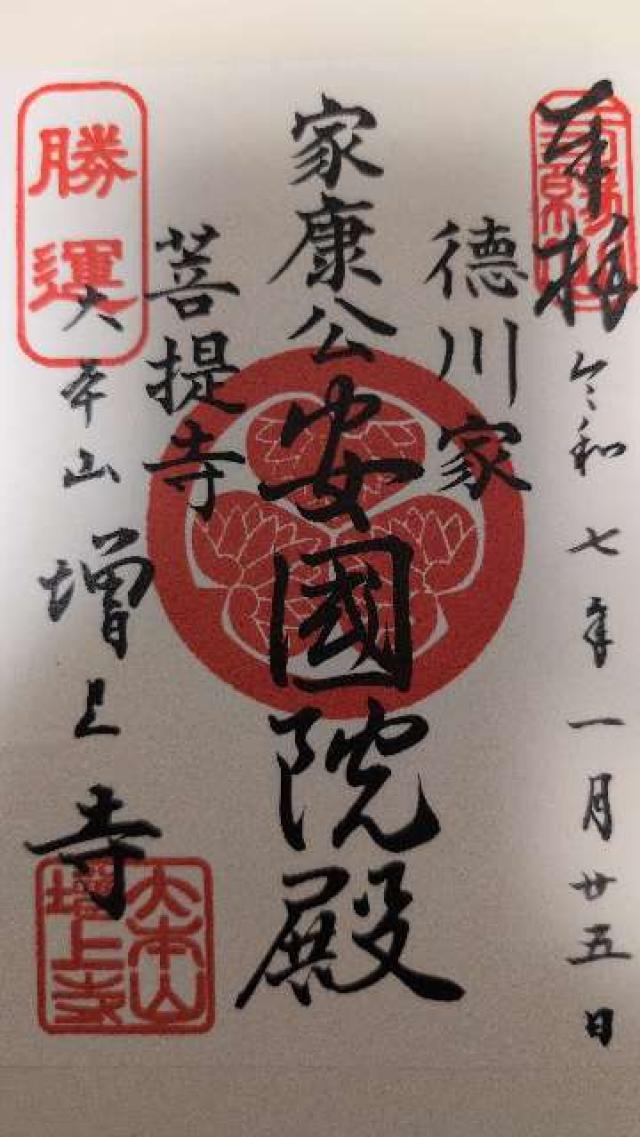 奉拝
令和七年一月廿五日
徳川家
家康公安國院殿
菩提寺
勝運
大本山増上寺
大本山
増上寺